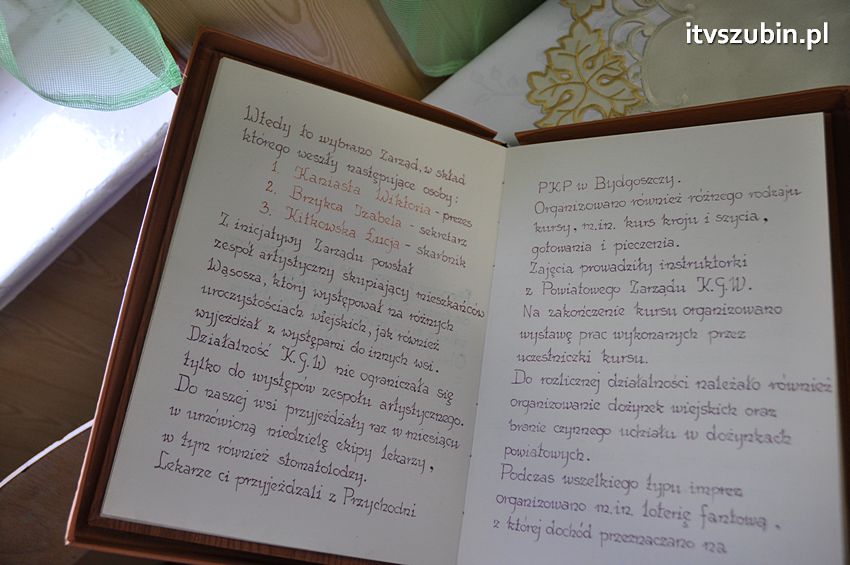 itvszubin.pl
Wtedy to wybrano Zarząd, w skład
którego weszły następujące osoby:
1. Kaniasta Wiktoria - prezes
2. Brzyka Izabela - sekretarz
3. Kitkowska Łucja - skarbnik
Z inicjatywy Zarządu powstał
zespół artystyczny skupiający mieszkańców
Wąsosza, który występował na różnych
uroczystościach wiejskich, jak również
wyjeżdżał z występami do innych wsi.
Działalność K.G.W nie ograniczała się
tylko do występów zespołu artystycznego.
Do naszej wsi przyjeżdżały raz w miesiącu
w umówioną niedzielę ekipy lekarzy,
w tym również stomatolodzy.
Lekarze ci przyjeżdzali z Przychodni
PKP w Bydgoszczy.
Organizowano również różnego rodzaju
kursy, m.in. kurs kroju i szycia,
gotowania i pieczenia.
Zajęcia prowadziły instruktorki
z Powiatowego Zarządu K.G.W.
Na zakończenie kursu organizowano
wystawę prac wykonanych przez
uczestniczki kursu.
Do rozlicznej działalności należało również
organizowanie dożynek wiejskich oraz
branie czynnego udziału w dożynkach
powiatowych.
Podczas wszelkiego typu imprez
organizowano m.in. loterię fantową,
z której dochód przeznaczano na